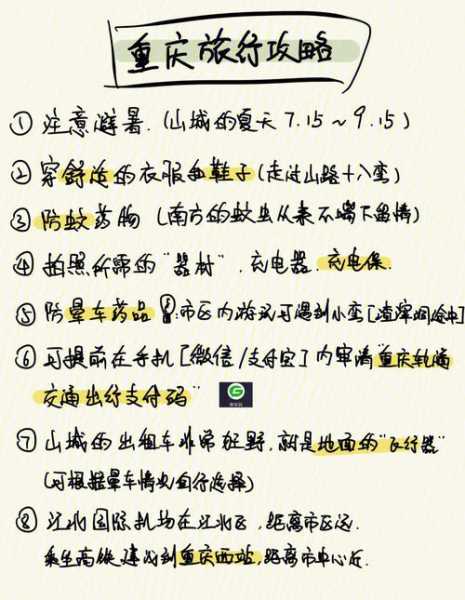 重庆旅行攻略
① 注意避暑.（山城的夏天 7.15～9.15）
② 穿舒适的衣服和鞋子（走过山路十八弯）
③ 防蚊药物（南方的蚊虫从来不嘴下留情）
④ 拍照所需的“器材”.充电器.充电宝.
⑤ 防晕车药品 市区内游玩可遇到小弯[渣滓洞途中]
⑥ 可提前在手机[微信/支付宝]内申请“重庆轨道
交通出行支付码”
⑦ 山城的出租车非常狂野.就是地面的“飞行器”
（可根据晕车情况自行选择）
⑧ 江北国际机场在江北区.距离市区远.
乘坐高铁建议到重庆西站.距离市中心近.